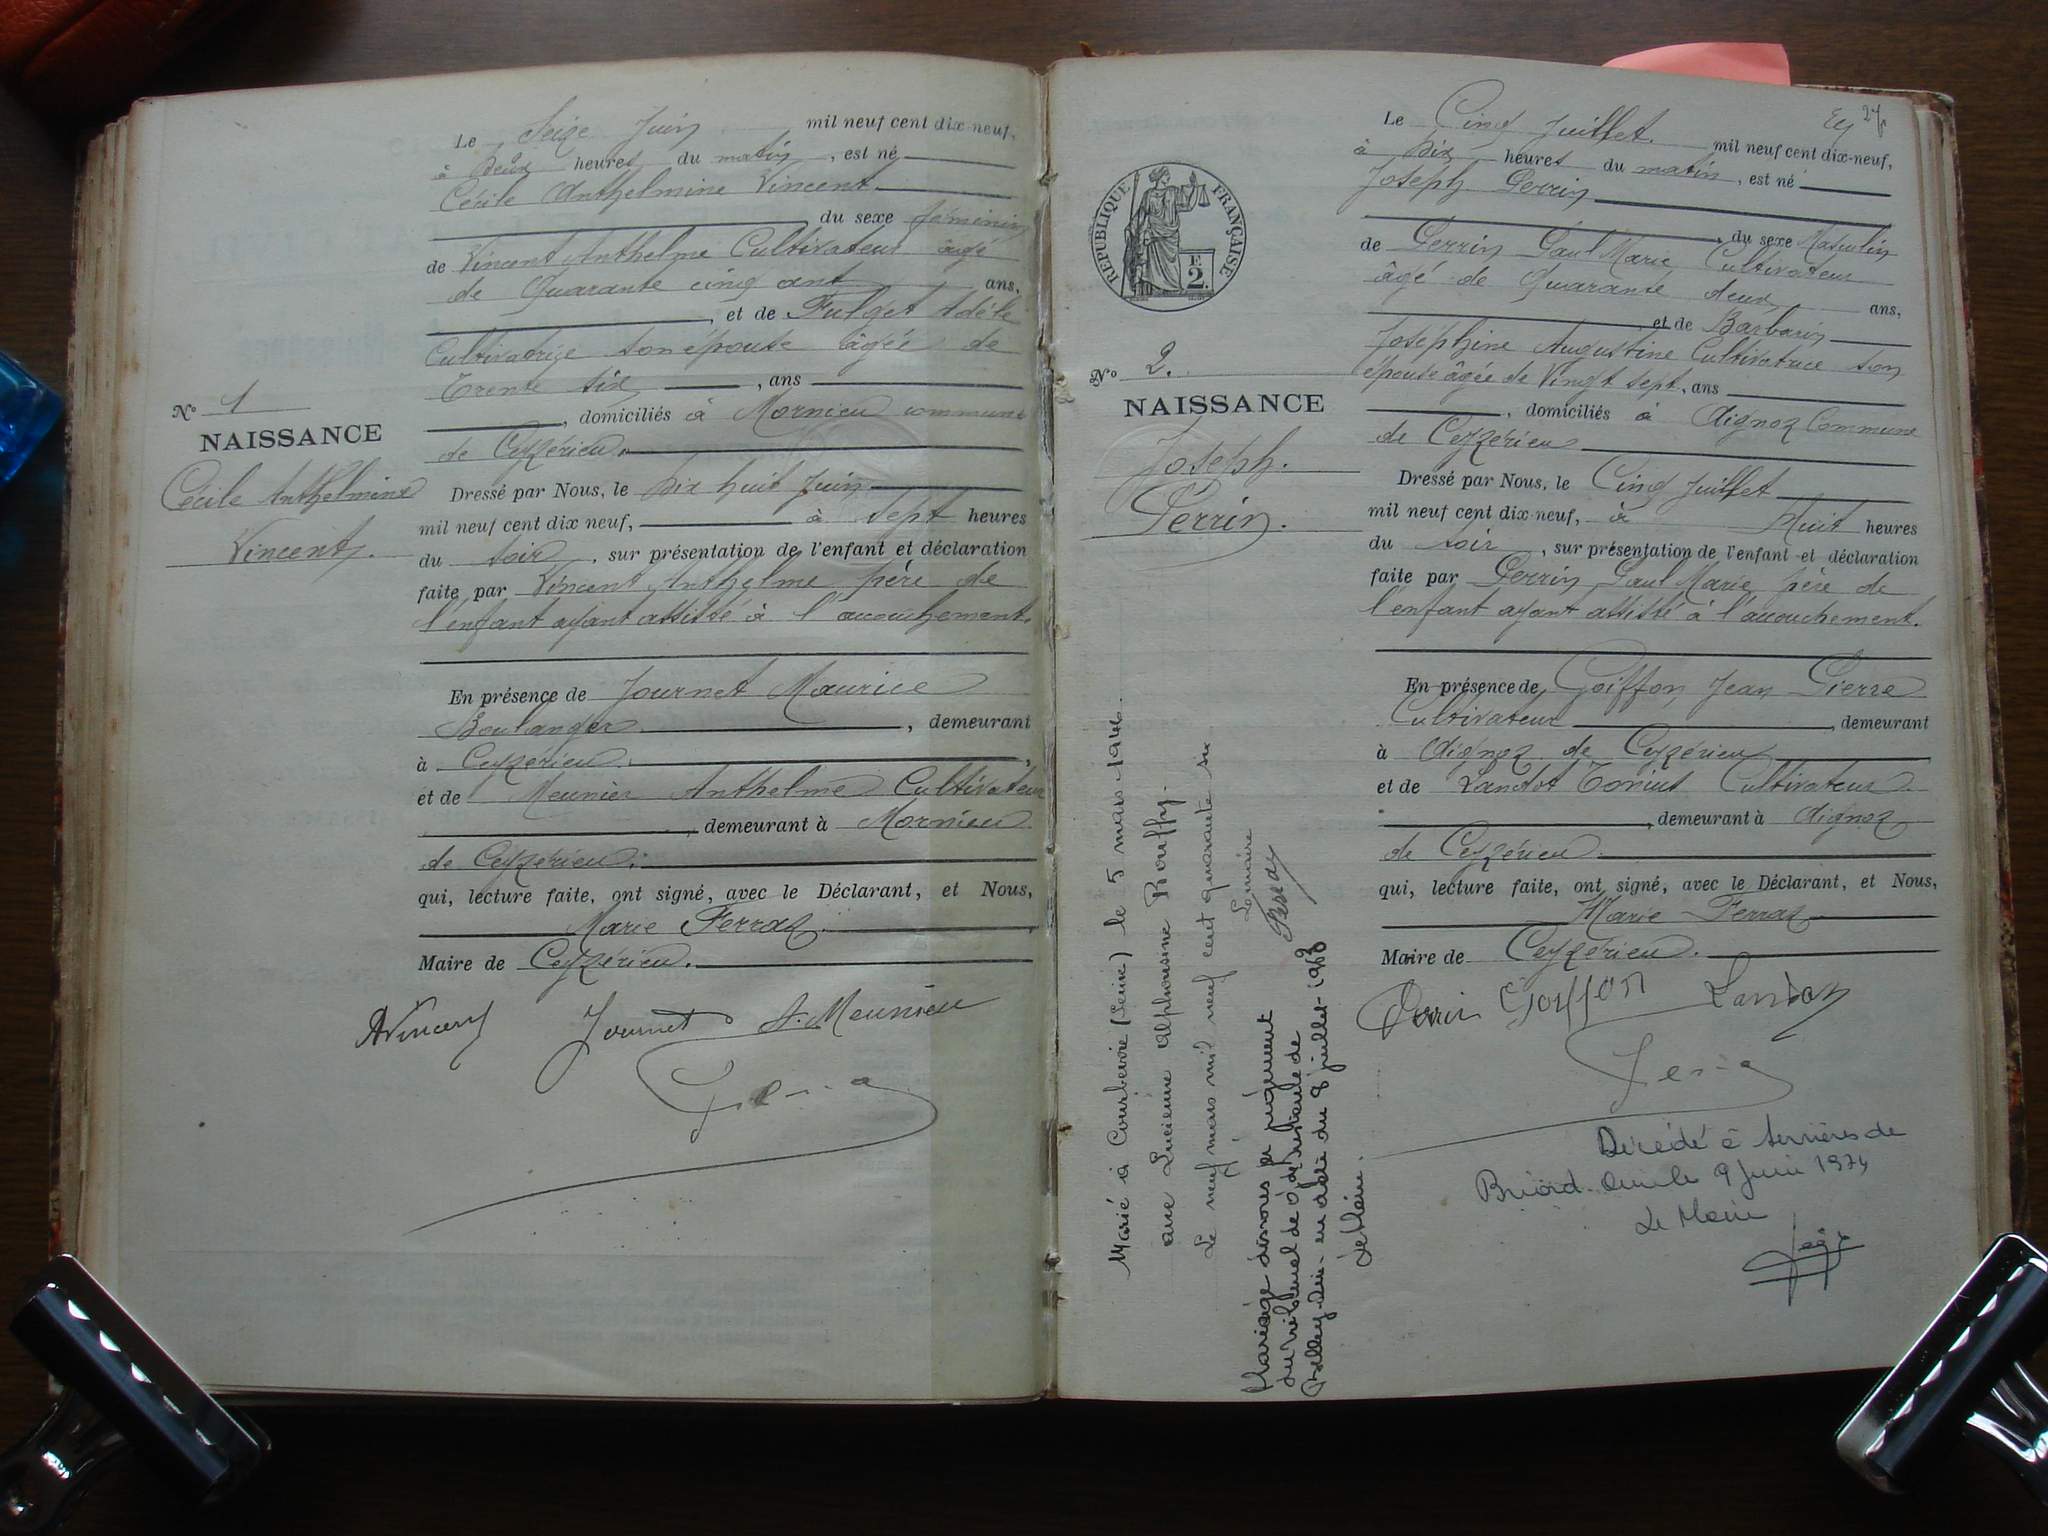 Le Seize Juin mil neuf cent dix-neuf,
à Deux heures du matin, est né
Cécile Anthelmine Vincent
du sexe féminin
de Vincent Anthelme Cultivateur âgé
de Quarante cinq ans ans,
et de Fulget Adèle
Cultivatrize son épouse âgée de
Trente six, ans
domiciliés à Mornieu commune
de Ceyzérieu.
Nº 1
NAISSANCE
Cécile Anthelmine
Vincent.
Dressé par Nous, le Dix huit Juin
mil neuf cent dix neuf, à sept heures
du soir, sur présentation de l'enfant et déclaration
faite par Vincent Anthelme père de
l'enfant ayant assisté à l'acouchement.
En présence de Journet Maurice
Boulanger, demeurant
à Ceyzérieu.
et de Meunier Anthelme Cultivateur
, demeurant à Mornieu
de Ceyzérieu.
qui, lecture faite, ont signé, avec le Déclarant, et Nous,
Marie Ferraz
Maire de Ceyzérieu.
AVincent Journet A. Meunier
27
Le Cinq Juillet. mil neuf cent dix-neuf,
à Dix heures du matin, est né
Joseph Perrin
, du sexe Masculin
de Perrin Paul Marie Cultivateur
âgé de Quarante deux ans,
et de Barbarin
Josephine Augustine Cultivatrice son
épouse âgée de Vingt sept, ans
, domiciliés à Aignoz Commune
de Ceyzérieu
REPUBLIQUE FRANÇAISE
E
2.
Nº 2.
NAISSANCE
Joseph.
Perrin.
Dressé par Nous, le Cinq Juillet
mil neuf cent dix-neuf, à Huit heures
du soir, sur présentation de l'enfant et déclaration
faite par Perrin Paul Marie père de
l'enfant ayant assisté à l'acouchement.
En présence de Goiffon Jean Pierre
Cultivateur, demeurant
à Aignoz de Ceyzérieu
et de Landot Tonius Cultivateur
, demeurant à Aignoz
de Ceyzérieu.
qui, lecture faite, ont signé, avec le Déclarant, et Nous,
Marie Ferraz
Maire de Ceyzérieu.
Perrin Goiffon Landoz
Marié à Courbevoie (Seine) le 5 mars 1946.
avec Lucienne Alphonsine Rouffy.
Le neuf mars mil neuf cent quarante six
Le maire
Mariage dissous par jugement
du tribunal de
Belley Ain en date du 8 juillet 1963
Le Maire.
Décédé à Serrières de
Briord Ain le 9 Juin 1974
Le Maire